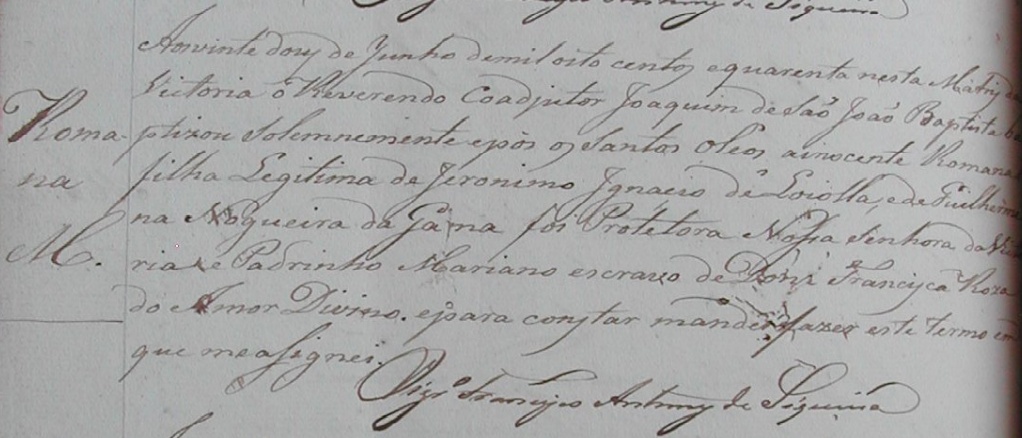 Antonio de Siqueira
Aos vinte douz de Junho demil oito centos equarenta nesta Matriz da
Victoria o Reverendo Coadjutor Joaquim de São João Baptista ba
Roma- ptizou Solemnemente epôs os Santos Oleos, ainocente Romana
na filha Legitima de Jeronimo Ignacio de Loiolla, e de Guilherme
na Nogueira da Gama foi Protetora Nossa Senhora da Victo
M. ria, e Padrinho Mariano escravo de Dona Francisca Roza
do Amor Divino. epara constar mandei fazer este termo em
que measignei.
Vigº Francisco Antonio de Siqueira